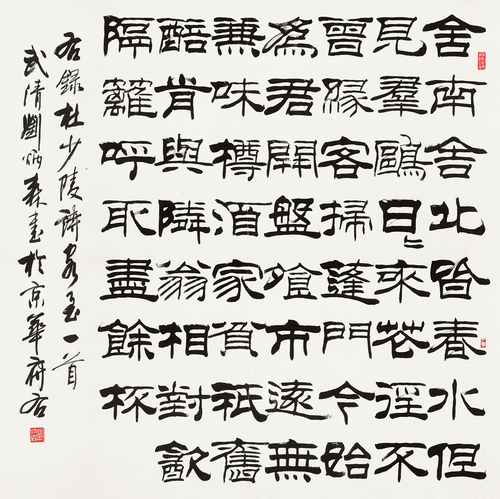 舍南舍北皆春水但
見羣鷗日〻來花徑不
曾緣客掃蓬門今始
為君開盤飧市遠無
兼味樽酒家貧祇舊
醅肯與隣翁相對飲
隔籬呼取盡餘杯
右錄杜少陵詩客至一首
武清劉炳森書於京華府右